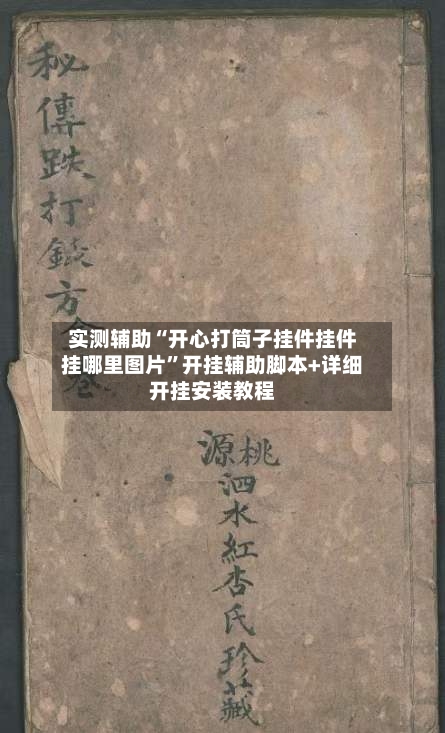 秘傳跌打
方全卷
实测辅助“开心打筒子挂件挂件
挂哪里图片”开挂辅助脚本+详细
开挂安装教程
桃源
泗水紅杏氏珍藏